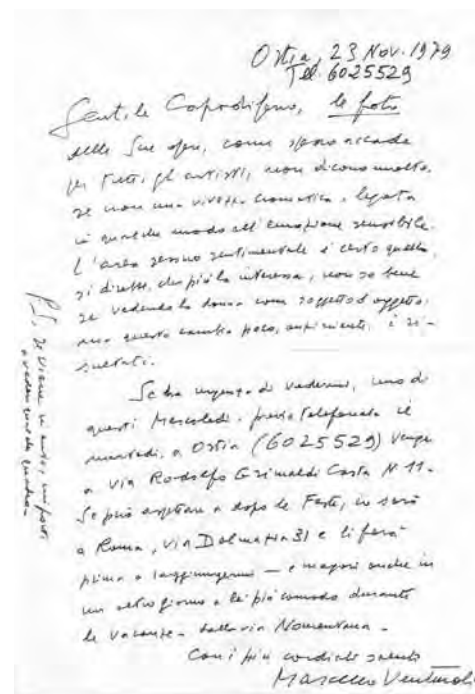 Ostia, 23 Nov. 1979
Tel. 6025529
Gentile Capodiferro, le foto
delle Sue opere, come spesso accade
per tutti gli artisti, non dicono molto,
se non una vivezza cromatica, legata
in qualche modo all'emozione sensibile.
L'area sessuo sentimentale è certo quella,
si direbbe, che più la interessa, non so bene
se vedendo la donna come soggetto o oggetto.
ma questo cambia poco, anzi niente, i ri-
sultati.
Se ha urgenza di vedermi, uno di
questi Mercoledì, previa telefonata il
martedì, a Ostia (6025529) venga
a via Rodolfo Grimaldi Casta N. 11.
Se può aspettare a dopo le Feste, io sarò
a Roma, via Dalmazia 31 e lì farà
prima a raggiungermi — e magari anche in
un altro giorno a lei più comodo durante
le vacanze - dalla via Nomentana -
Con i più cordiali saluti
Marcello Venturoli
P.S. se viene in auto, mi porti
a vedere qualche quadro -